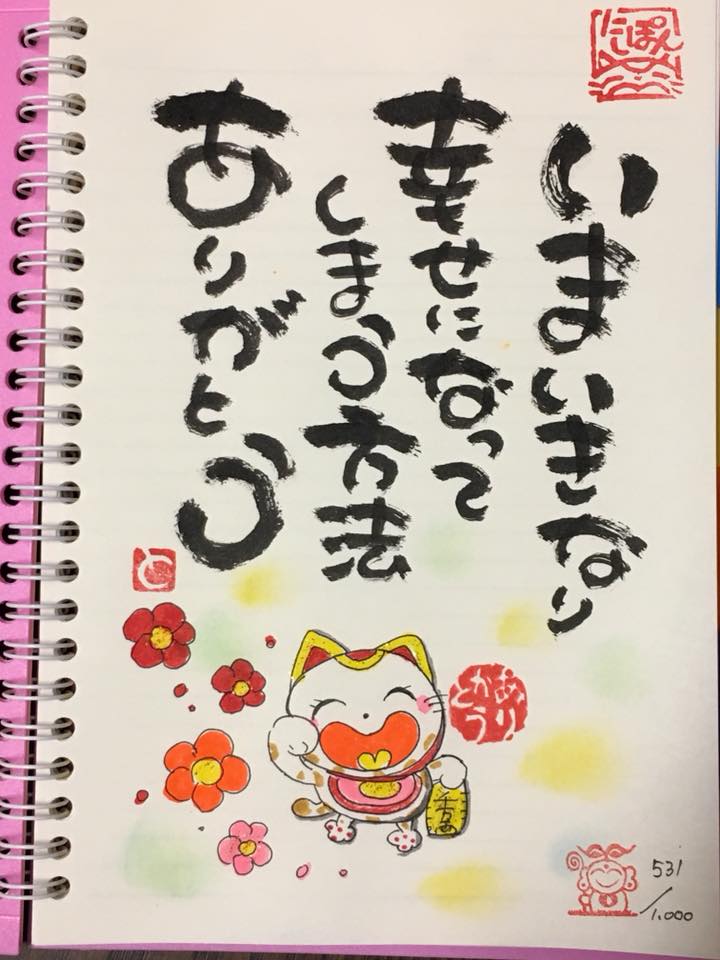 いまいきなり
幸せになって
しまう方法
ありがとう
にしぽん
と
ありがとう
531/1.000